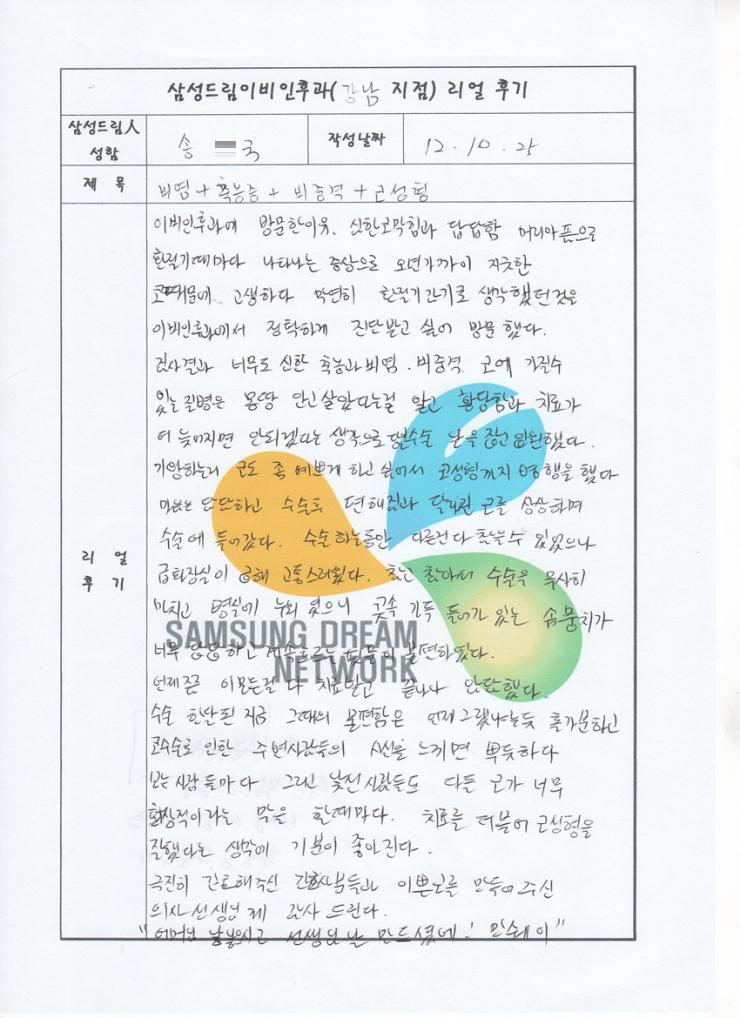 삼성드림이비인후과(강남 지점) 리얼 후기
삼성드림人
성함
송 국
작성날짜
12. 10. 25
제 목
비염+축농증+비중격+코성형
리 얼
후 기
이비인후과에 방문한이유. 심한코막힘과 답답함 머리아픔으로
환절기때마다 나타나는 증상으로 오년가까이 지긋한
코때문에 고생하다 막연히 환절기감기로 생각했던것은
이비인후과에서 정확하게 진단받고 싶어 방문 했다.
검사결과 너무도 심한 축농과 비염. 비중격 코에 가질수
있는 질병은 몽땅 안고 살았다는걸 알고 황당함과 치료가
더 늦어지면 안되겠다는 생각으로 수술 날을 잡고 입원했다.
기왕하는거 코도 좀 예쁘게 하고 싶어서 코성형까지 병행을 했다
마음은 담담하고 수술후 편해짐과 달라진 코를 상상하며
수술에 들어갔다. 수술하는동안 다른건 다 참을수 있었으나
급화장실이 급해 고통스러웠다. 참고 참아서 수술을 무사히
마치고 병실에 누워 있으니 콧속 가득 들어가 있는 솜뭉치가
너무 답답하고 계속흐르는 핏물이 불편하였다.
언제쯤 이모든걸 다 치료받고 끝나나 암담했다.
수술 한달된 지금 그때의 불편함은 언제그랬냐는듯 홀가분하고
코수술로 인한 주변사람들의 시선을 느끼면 뿌듯하다
보는 사람들마다 그리고 낯선사람들도 다들 코가 너무
환상적이라는 말은 할때마다. 치료를 더불어 코성형을
잘했다는 생각에 기분이 좋아진다.
극진히 간호해주신 간호사분들과 이쁜코를 만들어 주신
의사선생님께 감사 드린다.
"어머님 날낳으시고 선생님 날 만드셨네! 만수레이"
SAMSUNG DREAM
NETWORK